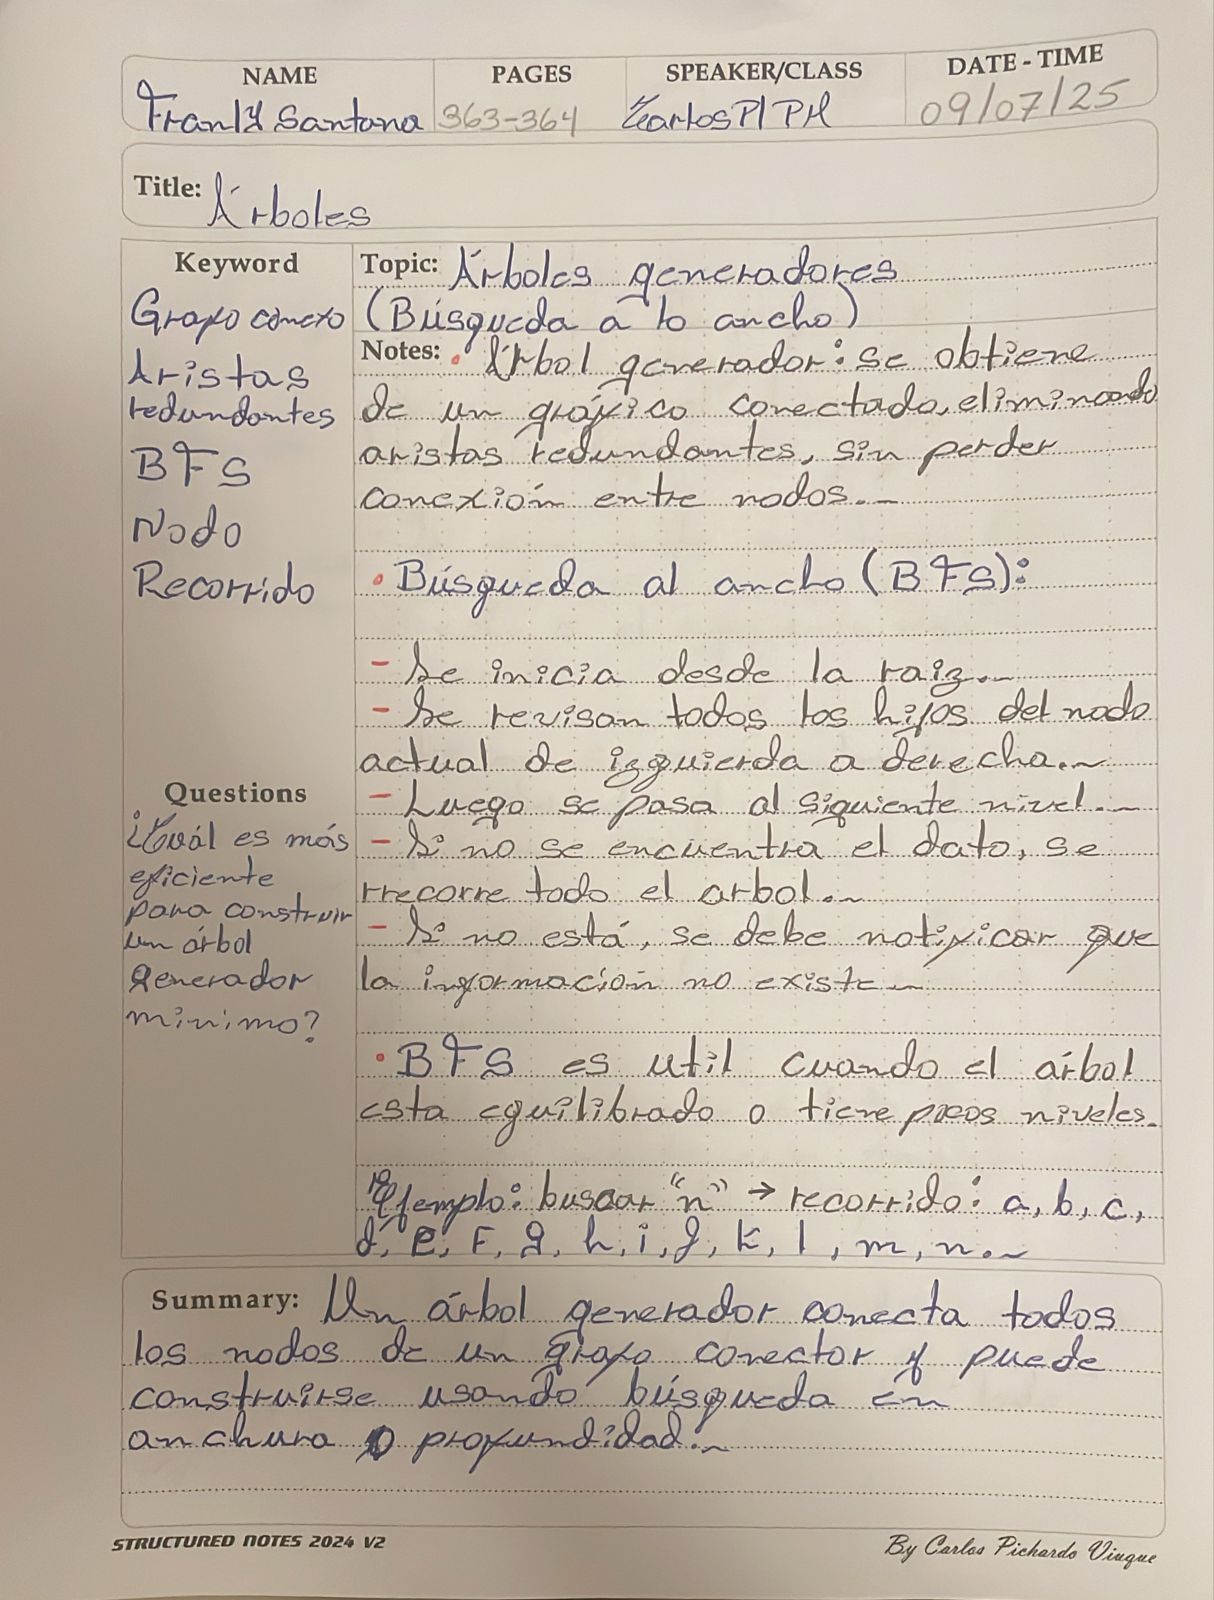 NAME PAGES SPEAKER/CLASS DATE - TIME
Franly Santana 363-364 CarlosP/PH 09/07/25
Title: Árboles
Keyword
Grafo conexo
Aristas
redundantes
BFS
Nodo
Recorrido
Questions
¿Cuál es más
eficiente
para construir
un árbol
generador
minimo?
Topic: Árboles generadores
(Búsqueda a lo ancho)
Notes: • Árbol generador: se obtiene
de un gráfico conectado, eliminando
aristas redundantes, sin perder
conexión entre nodos.
• Búsqueda al ancho (BFS):
- Se inicia desde la raiz.
- Se revisan todos los hijos del nodo
actual de izquierda a derecha.
- Luego se pasa al siguiente nivel.
- Si no se encuentra el dato, se
rrecorre todo el arbol.
- Si no está, se debe notificar que
la información no existe
• BFS es util cuando el árbol
esta equilibrado o tiene pocos niveles.
Ejemplo: buscar "n" → recorrido: a, b, c,
d, e, f, g, h, i, j, k, l, m, n.
Summary: Un árbol generador conecta todos
los nodos de un grafo conector y puede
construirse usando búsqueda en
anchura o profundidad.
STRUCTURED NOTES 2024 V2
By Carlos Pichardo Viuque